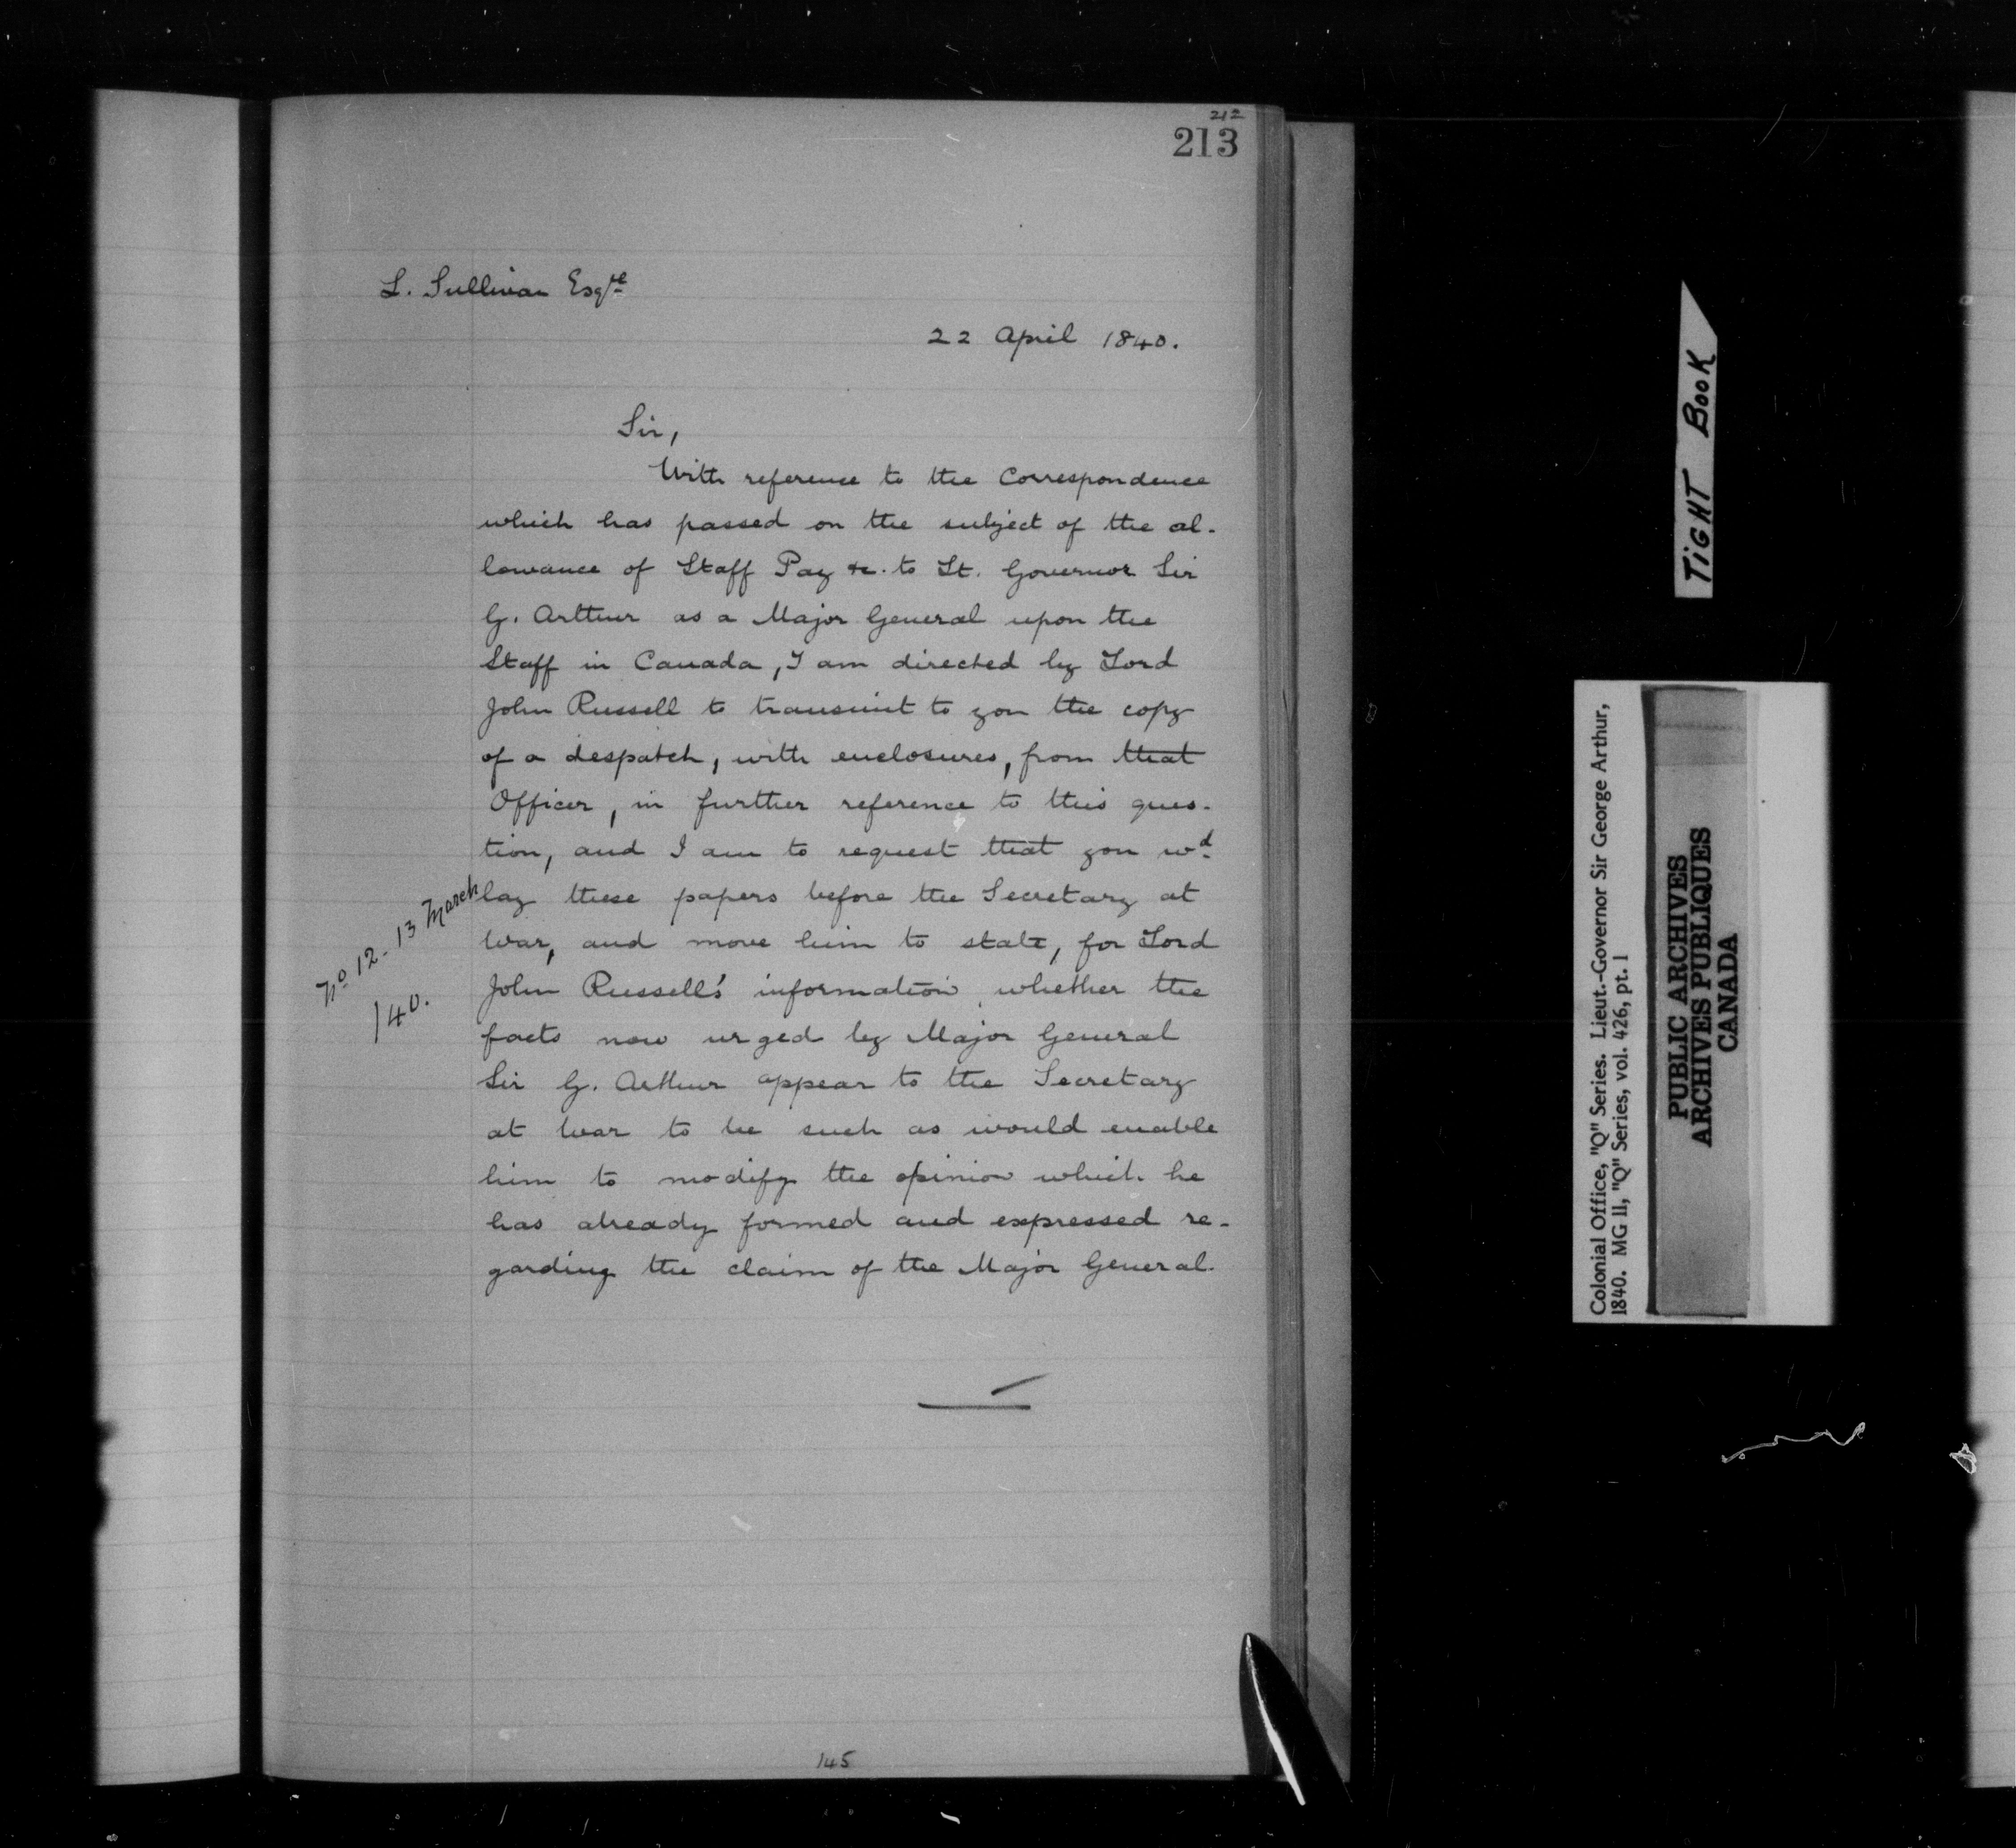 212
213
L. Sullivan Esqre
22 April 1840.
Sir,
With reference to the Correspondence
which has passed on the subject of the al-
lowance of Staff Pay &c. to Lt. Governor Sir
G. Arthur as a Major General upon the
Staff in Canada, I am directed by Lord
John Russell to transmit to you the copy
of a despatch, with enclosures, from that
Officer, in further reference to this ques-
tion, and I am to request that you wd
lay these papers before the Secretary at
War, and move him to state, for Lord
John Russell's information, whether the
facts now urged by Major General
Sir G. Arthur appear to the Secretary
at War to be such as would enable
him to modify the opinion which he
has already formed and expressed re-
garding the claim of the Major General.
No 12 - 13 March
/40.
145
TIGHT BOOK
Colonial Office, "Q" Series. Lieut.-Governor Sir George Arthur,
1840. MG 11, "Q" Series, vol. 426, pt. 1
PUBLIC ARCHIVES
ARCHIVES PUBLIQUES
CANADA